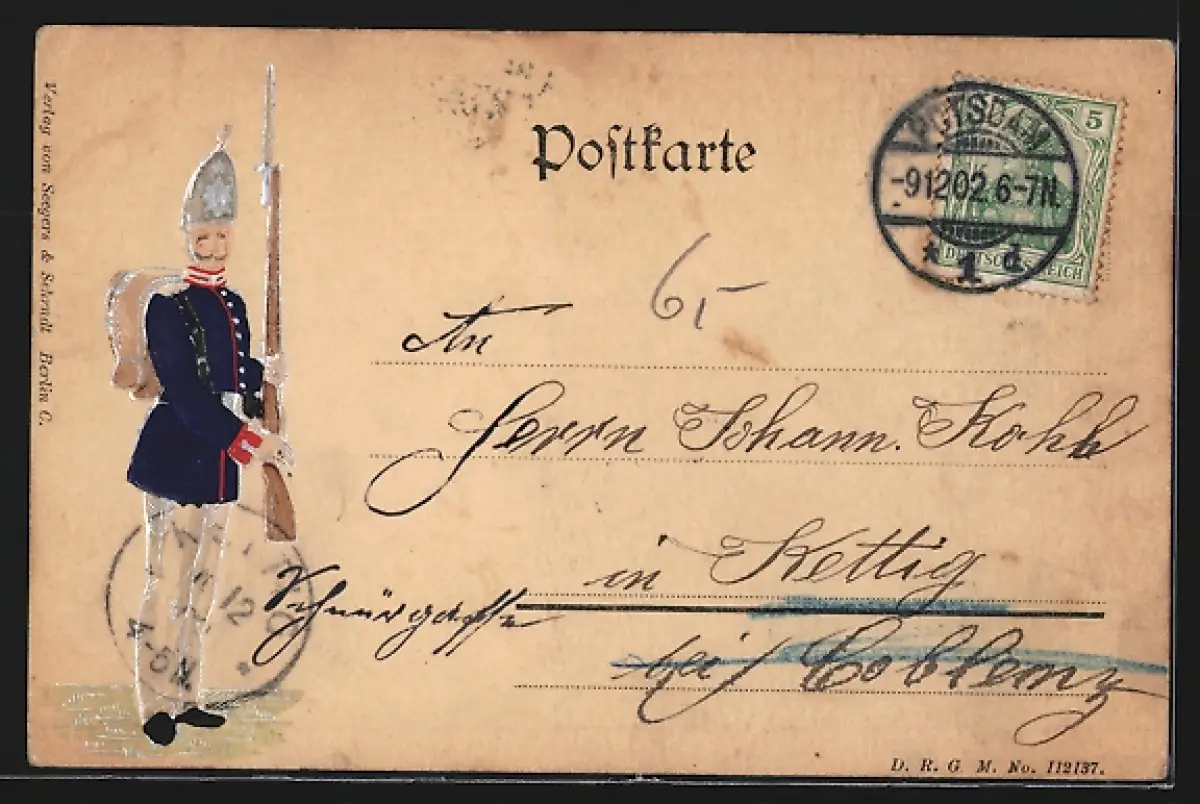 Postkarte
POTSDAM
-9 12 02. 6-7N.
* 1 d
5
DEUTSCHES REICH
65
An
Herrn Johann
in Kettig
Schnürgasse
bei Coblenz
11 12
4-5N
*
Verlag von Seegers & Schmidt Berlin C.
D. R. G. M. No. 112137.